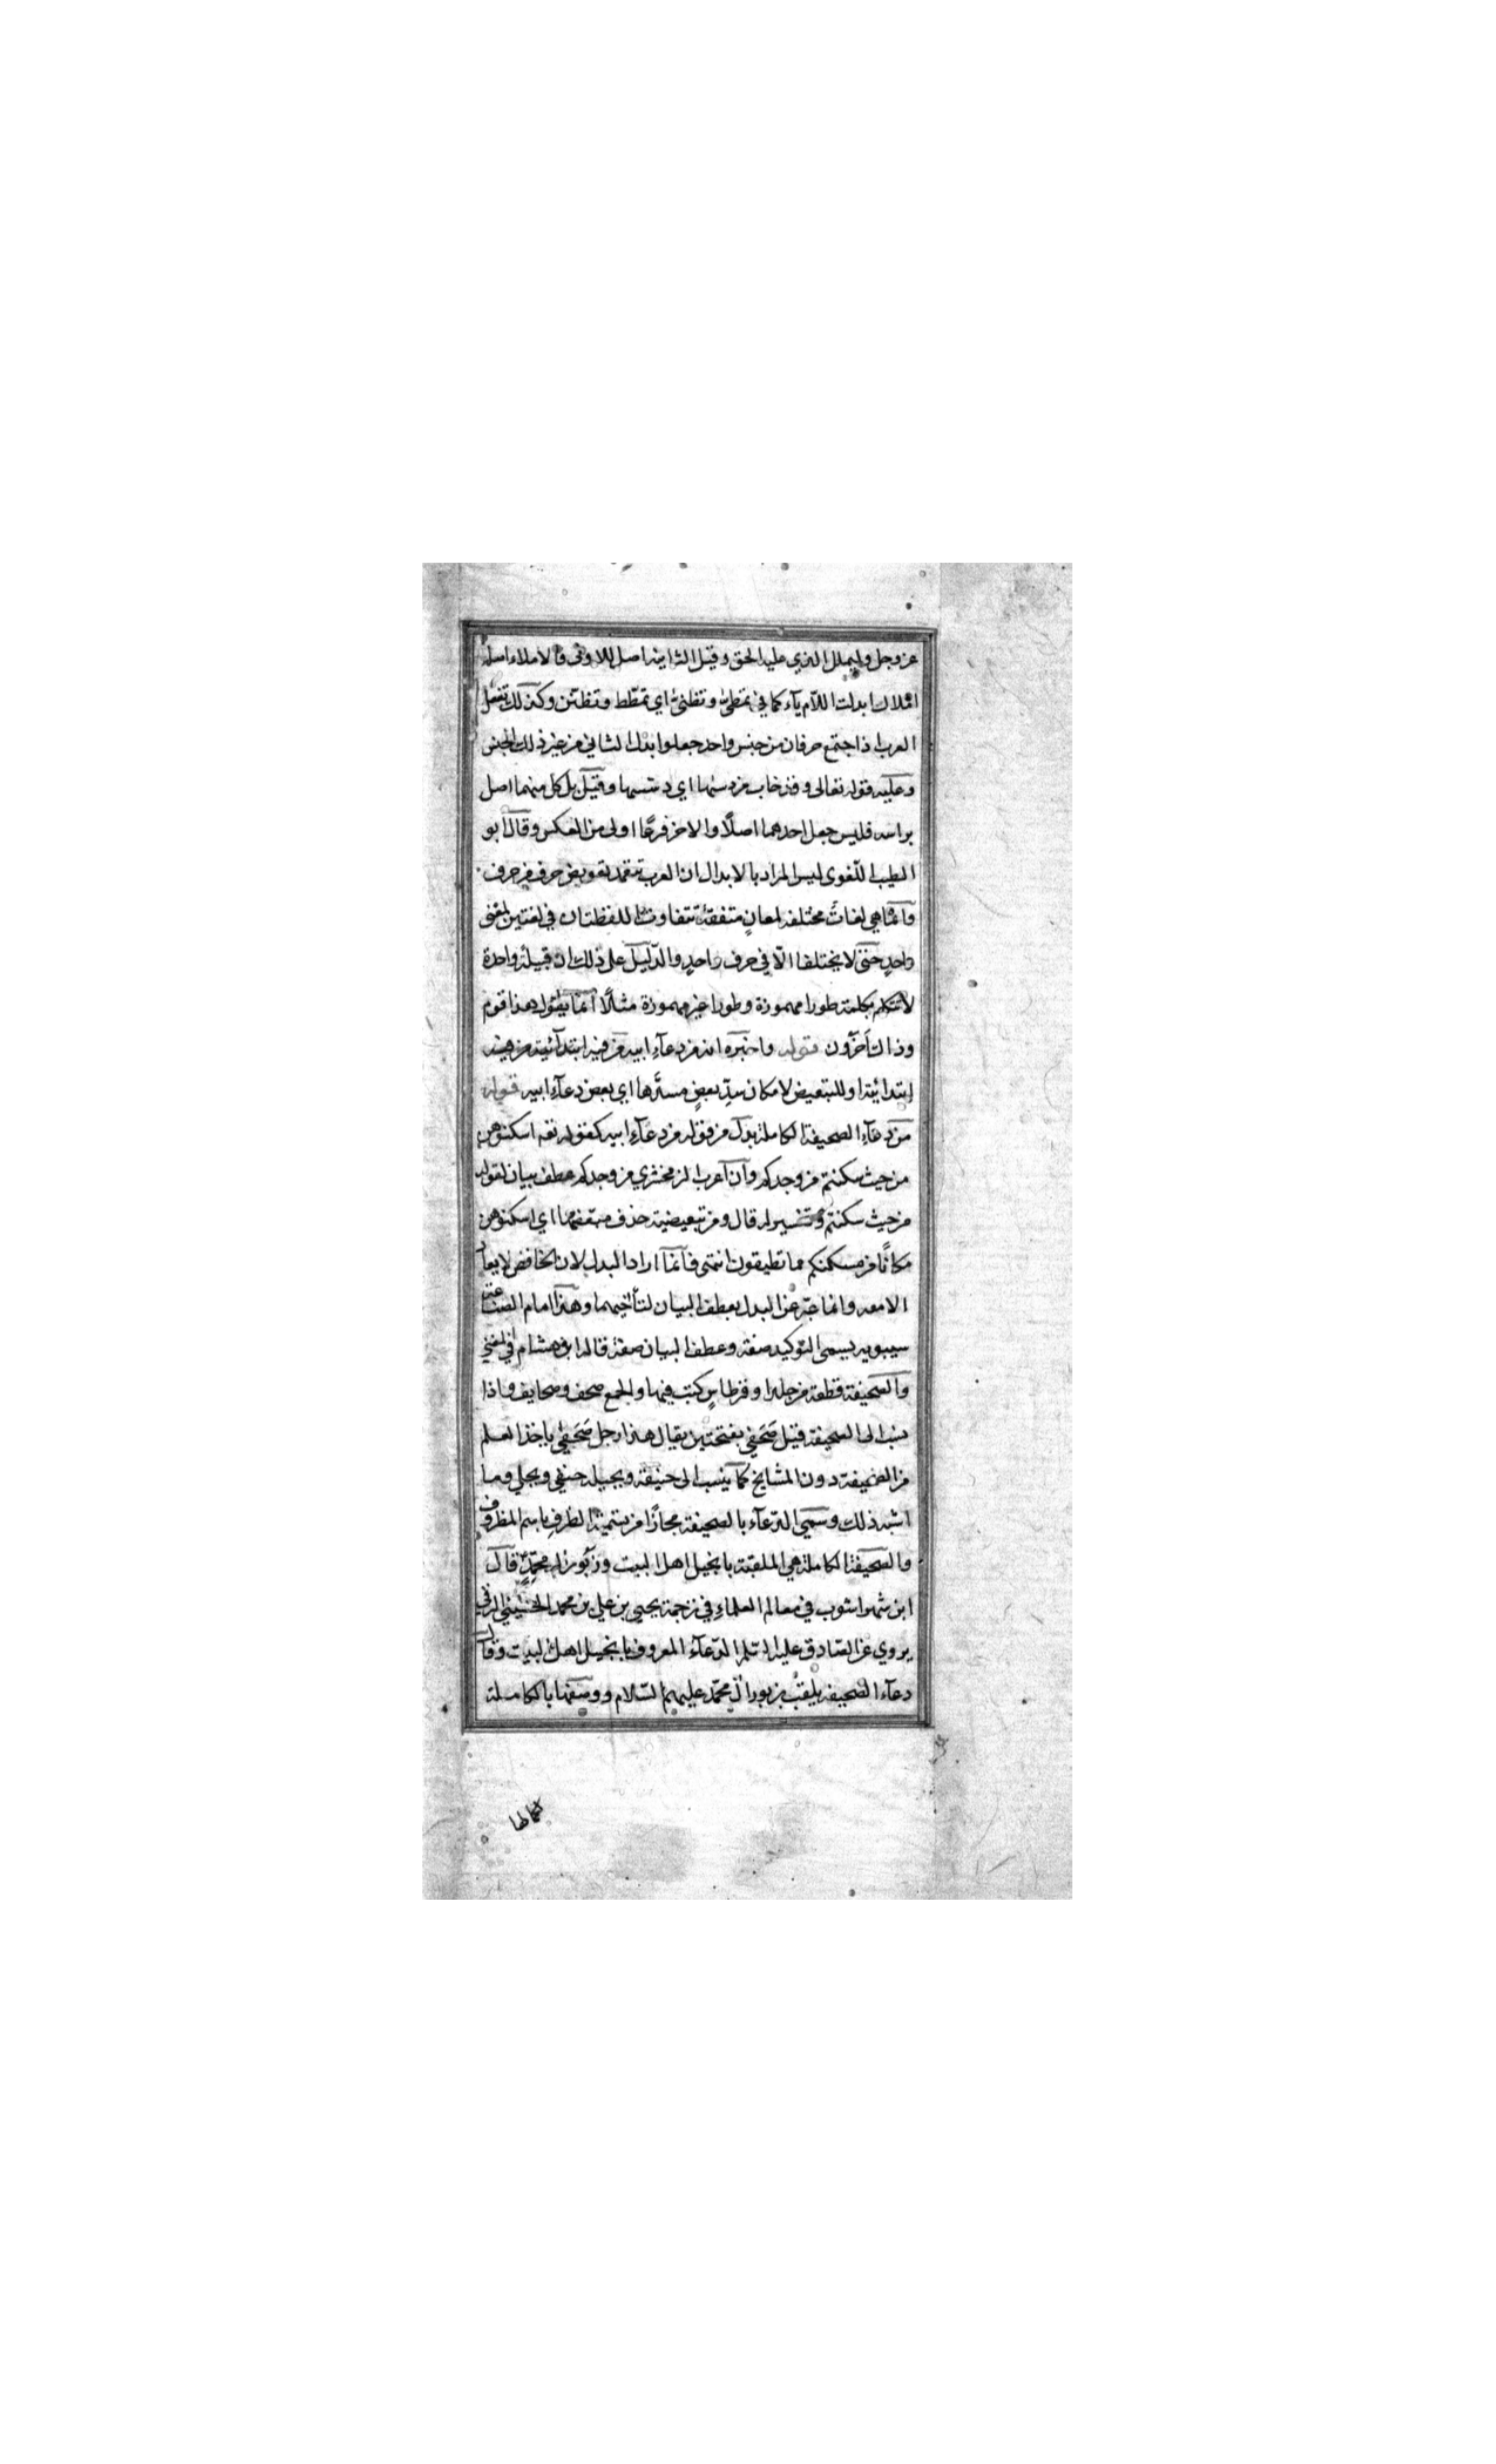 عز وجل وليملل الذي عليه الحق وقيل الثانية اصل للاولى فالاملاء اصله
املال ابدلت اللام ياء كما في تمطى وتظنى اي تمطط وتظنن وكذلك تفعل
العرب اذا اجتمع حرفان من جنس واحد جعلوا بدل الثاني من غير ذلك الجنس
وعليه قوله تعالى وقد خاب من دسيها اي دسسها وقيل بل كل منهما اصل
براسه فليس جعل احدهما اصلًا والاخر فرعًا اولى من العكس وقال ابو
الطيب اللغوي ليس المراد بالابدال ان العرب تتعمد تعويض حرف من حرف
وانما هي لغاتٌ مختلفة لمعانٍ متفقة تتفاوت اللفظتان في لغتين لمعنى
واحدٍ حتى لا يختلفا الّا في حرف واحدٍ والدليل على ذلك ان قبيلة واحدة
لا تتكلم بكلمة طورا مهموزة وطورا غير مهموزة مثلًا انما يقول هذا قوم
وذاك آخرون قوله واخبره انه من دعآء ابيه من فيه ابتدآئية من فيه
ابتدائية او للتبعيض لامكان سدّ بعضٍ مسدّها اي بعض دعآء ابيه قوله
من دعآء الصحيفة الكاملة بدل من قوله من دعآء ابيه كقوله تعه اسكنوهن
من حيث سكنتم من وجدكم وان اعرب الزمخشري من وجدكم عطف بيان لقوله
من حيث سكنتم وتفسير له قال ومن تبعيضية حذف مبعضها اي اسكنوهن
مكانًا من مسكنكم مما تطيقون انتهى فانما اراد البدل لان الخافض لا يعاد
الا معه وانما عبّر عن البدل بعطف البيان لتآخيهما وهذا امام الصناعة
سيبويه يسمى التوكيد صفة وعطف البيان صفة قاله ابن هشام في المغني
والصحيفة قطعة من جلد او قرطاس كتب فيها والجمع صحف وصحايف واذا
نسب الى الصحيفة قيل صَحَفي بفتحتين يقال هذا رجل صَحَفي ياخذ العلم
من الصحيفة دون المشايخ كما ينسب الى حنيفة وبجيلة حنفي وبجلي وما
اشبه ذلك وسمي الدعآء بالصحيفة مجازًا من تسمية الظرف باسم المظروف
والصحيفة الكاملة هي الملقبة بانجيل اهل البيت وزبور آل محمدٍ قال
ابن شهراشوب في معالم العلماء في ترجمة يحيى بن علي بن محمد الحسيني الرقي
يروي عن الصادق عليه السلم الدعآء المعروف بانجيل اهل البيت وقال
دعآء الصحيفة يلقب بزبور آل محمد عليهم السلام ووصفها بالكاملة
لكمالها